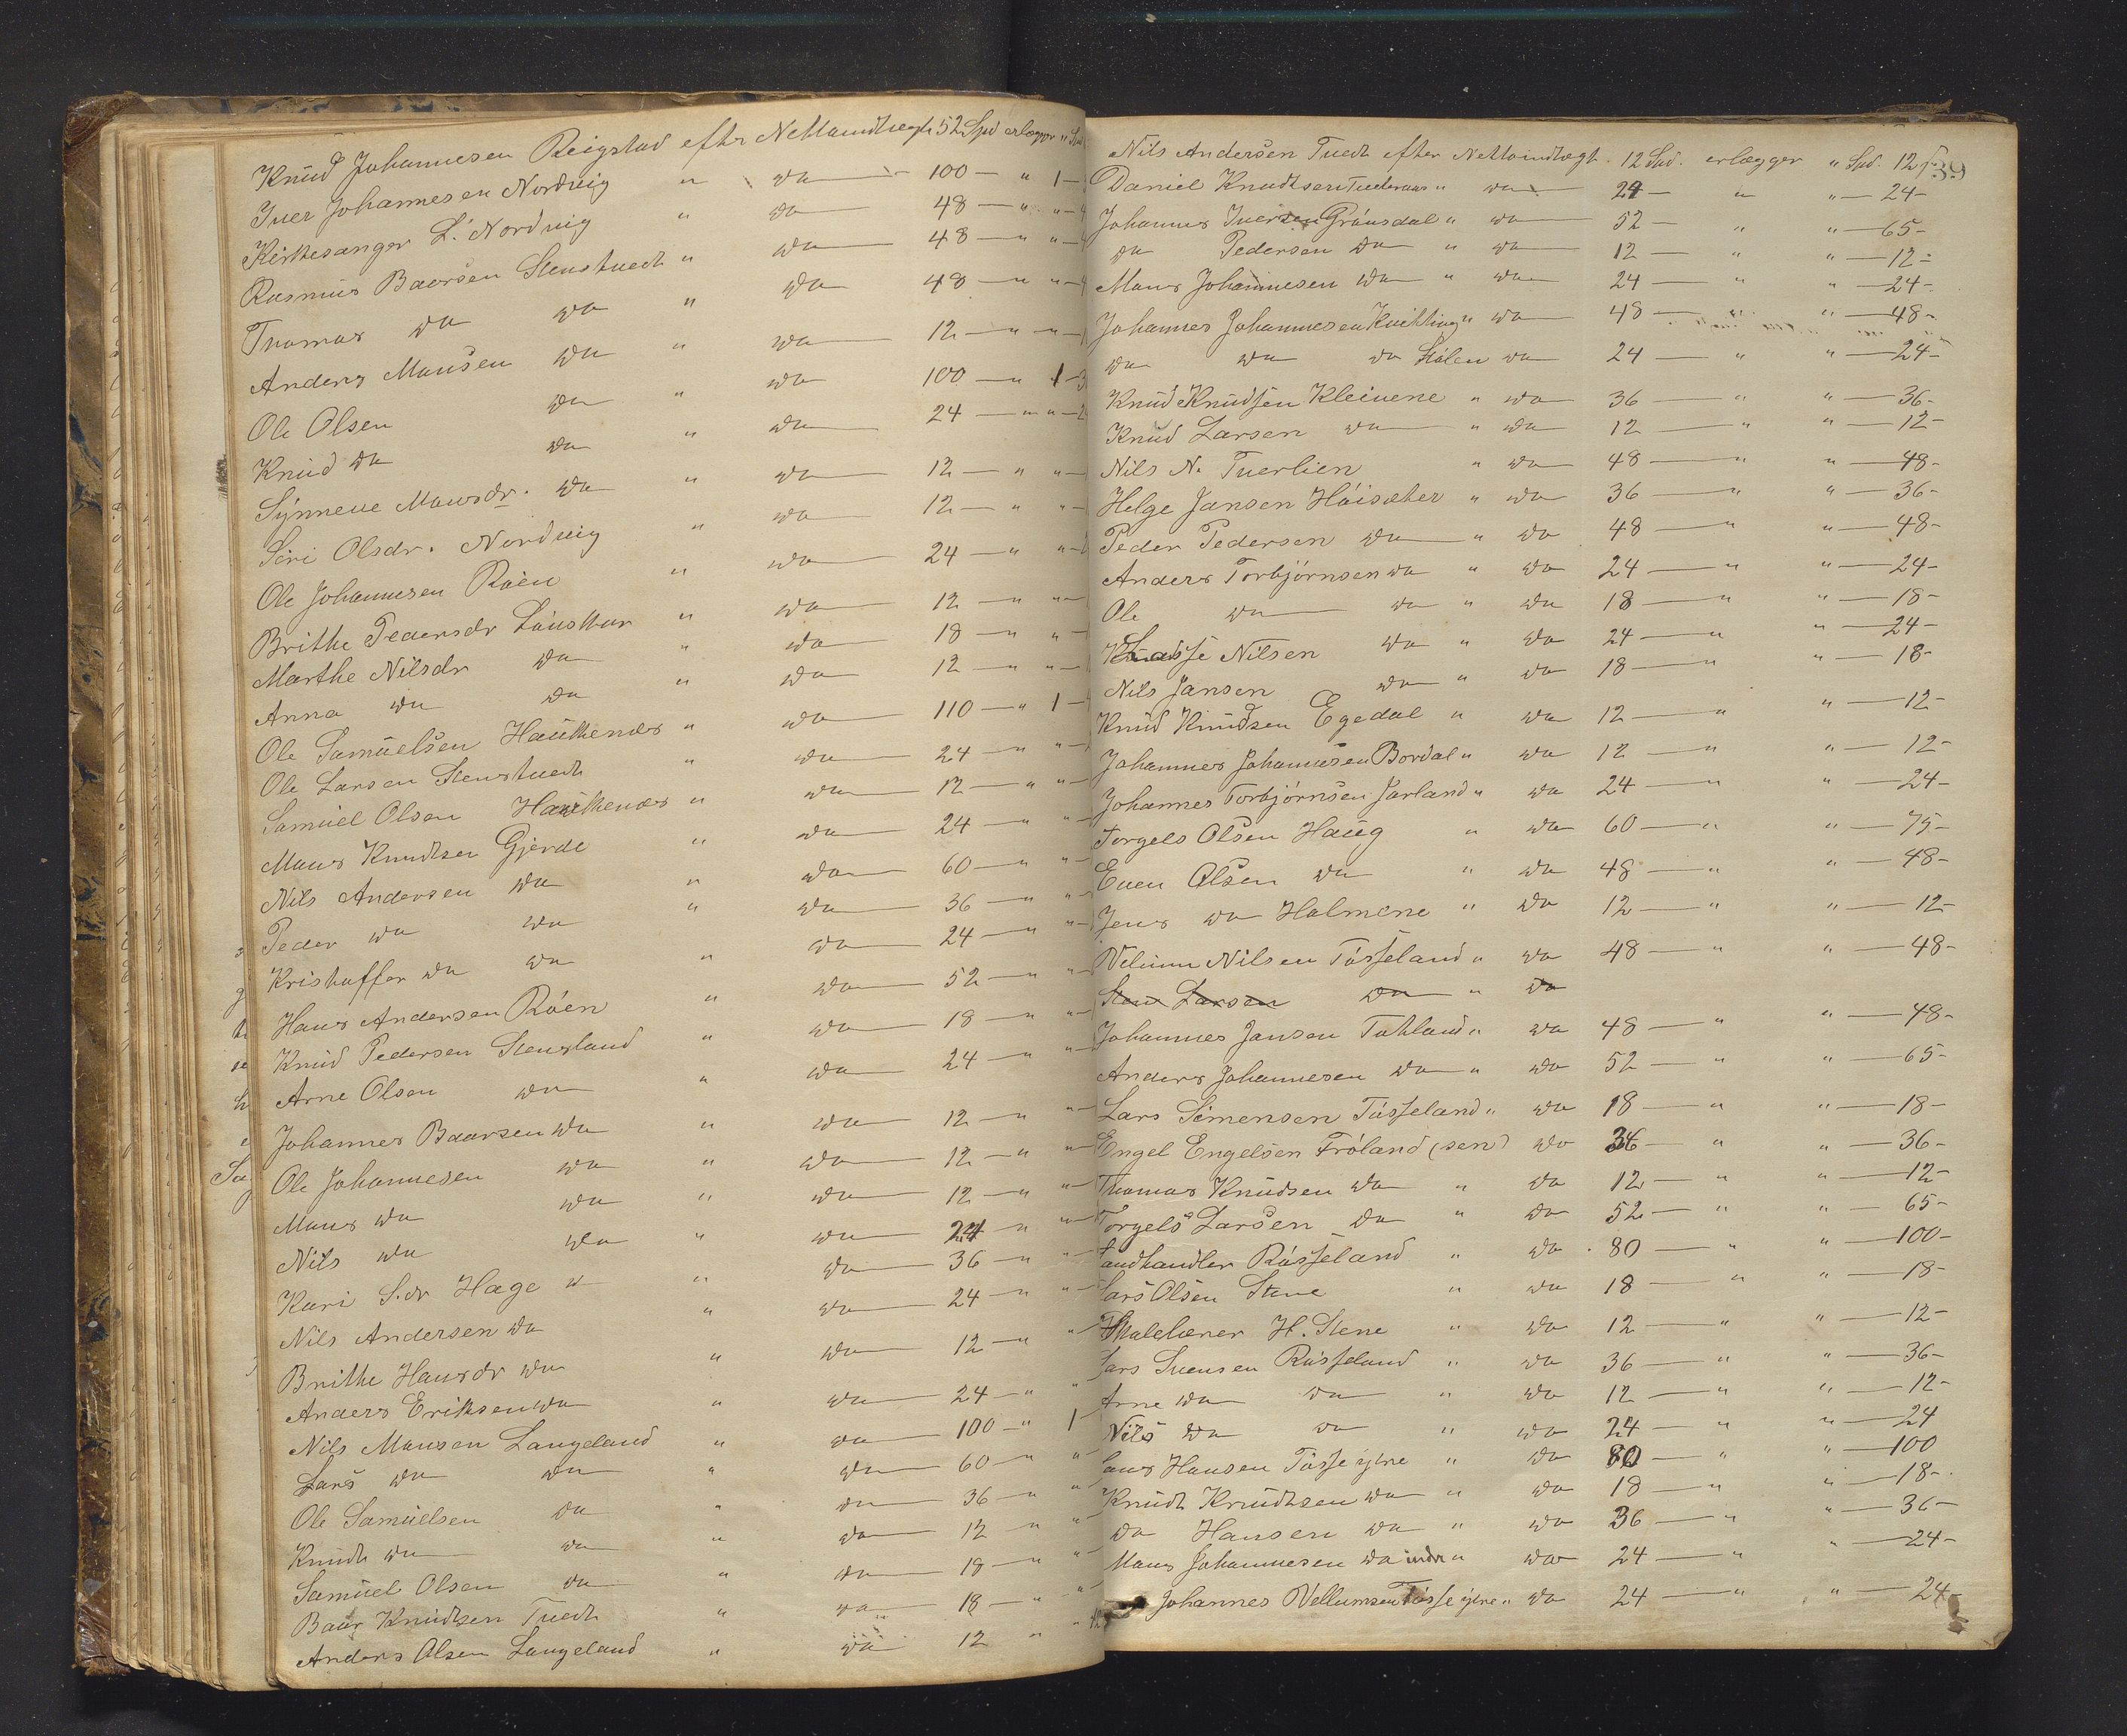 Knud Johannesen Reigstad efter Nettoindtægt 52 Spd erlægger "
Iver Johannesen Nordvig " do 100 — " 1 —
Kirkesanger L. Nordvig " do 48 — " " —
Rasmus Baarsen Stenstvedt " do 48 — " " —
Thomas do do " do 48 — " " —
Anders Monsen do " do 12 — " " —
Ole Olsen do " do 100 — " 1 — 3
Knud do do " do 24 — " " — 2
Synneve Monsdr. do " do 12 — " " —
Siri Olsdr. Nordvig " do 12 — " " —
Ole Johannesen Röen " do 24 — " " —
Brithe Pedersdr " do 12 — " " —
Marthe Nilsdr do " do 18 — " " —
Anna do do " do 12 — " " —
Ole Samuelsen Haukenæs " do 110 — " 1 —
Ole Larsen Stenstvedt " do 24 — " " —
Samuel Olsen Haukenæs " do 12 — " " —
Mons Knudtsen Gjerde " do 24 — " "
Nils Andersen do " do 60 — " "
Peder do do " do 36 — " "
Kristoffer do do " do 24 — " "
Hans Andersen Röen " do 52 — " "
Knud Pedersen Stensland " do 18 — " "
Arne Olsen do " do 24 — " "
Johannes Baarsen do " do 12 — " "
Ole Johannesen do " do 12 — " "
Mons do do " do 12 — " "
Nils do do " do 24 — " "
Kari S.dr Hage " do 36 — " "
Nils Andersen do " do 24 — " "
Brithe Hansdr do " do 12 — " "
Anders Eriksen do " do 24 — " "
Nils Monsen Langeland " do 100 — " 1
Lars do do " do 60 — " "
Ole Samuelsen do " do 36 — " "
Knudt do do " do 12 — " "
Samuel Olsen do " do 18 — " "
Baar Knudtsen Tvedt " do 18 — " "
Anders Olsen Langeland " do 12 " "
39
Nils Andersen Tvedt efter Nettoindtægt 12 Spd. erlægger " Spd. 12 ſ
Daniel Knudtsen Tvederaas " do 24 — " " — 24 -
Johannes Iversen Grönsdal " do 52 — " " — 65 -
do Pedersen do " do 12 — " " — 12 -
Mons Johannesen do " do 24 — " " — 24 -
Johannes Johannesen Kvitting " do 48 — " " — 48 -
do do do Stölen do 24 — " " — 24 -
Knud Knudsen Kleivene " do 36 — " " — 36 -
Knud Larsen do " do 12 — " " — 12 -
Nils N. Tverlien " do 48 — " " — 48 -
Helge Jansen Höisæter " do 36 — " " — 36 -
Peder Pedersen do " do 48 — " " — 48 -
Anders Torbjörnsen do " do 24 — " " — 24 -
Ole do do " do 18 — " " — 18 -
Lasse Nilsen do " do 24 — " " — 24 -
Nils Jansen do " do 18 — " " — 18 -
Knud Knudsen Egedal " do 12 — " " — 12 -
Johannes Johannesen Bordal " do 12 — " " — 12 -
Johannes Torbjörnsen Jarland " do 24 — " " — 24 -
Torgels Olsen Haug " do 60 — " " — 75 -
Even Olsen do " do 48 — " " — 48 -
Jens do Holmene " do 12 — " " — 12 -
Velium Nilsen Tösseland " do 48 — " " — 48 -
Sten Larsen do " do
Johannes Jansen Totland " do 48 — " " — 48 -
Anders Johannesen do " do 52 — " " — 65 -
Lars Simensen Tösseland " do 18 — " " — 18 -
Engel Engelsen Fröland (sen) do 36 — " " — 36 -
Thomas Knudsen do " do 12 — " " — 12 -
Torgels Larsen do " do 52 — " " — 65 -
Landhandler Rösseland " do 80 — " " — 100 -
Lars Olsen Stene " do 18 — " " — 18 -
Skolelærer H. Stene " do 12 — " " — 12 -
Lars Svensen Rösseland " do 36 — " " — 36 -
Arne do do " do 12 — " " — 12 -
Nils do do " do 24 — " " — 24
Hans Hansen Tössejene " do 80 — " " — 100
Knudt Knudtsen do " do 18 — " " — 18 -
do Hansen do " do 36 — " " — 36 -
Mons Johannesen do indr " do 24 — " " — 24 -
Johannes Vellumsen Tössejene " do 24 — " " — 24